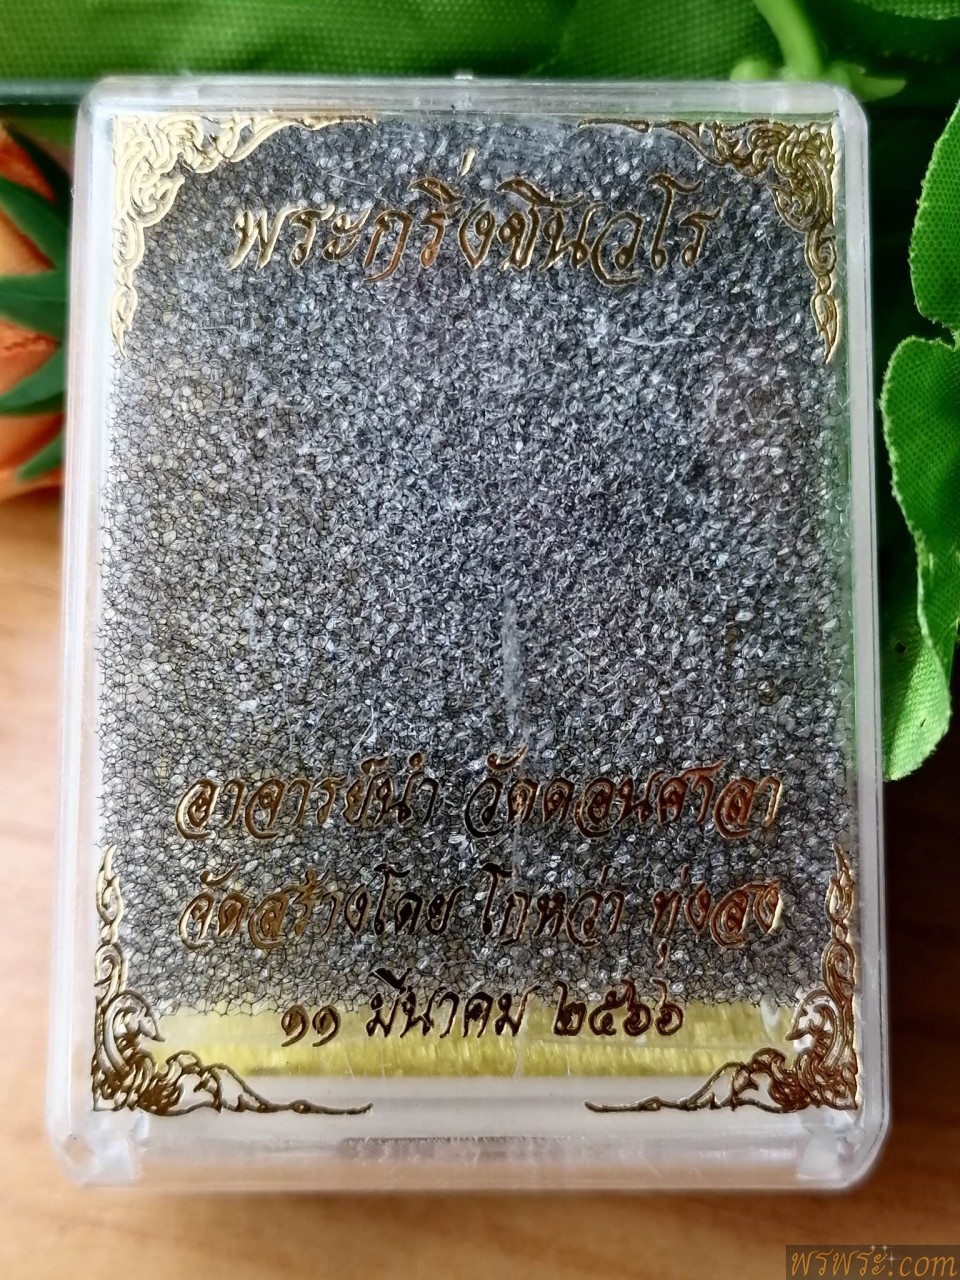 พระกริ่งชินวโร
อาจารย์นำ วัดดอนศาลา
จัดสร้างโดย โกหว่า ทุ่งสง
๑๑ มีนาคม ๒๕๖๖
พรพระ.com